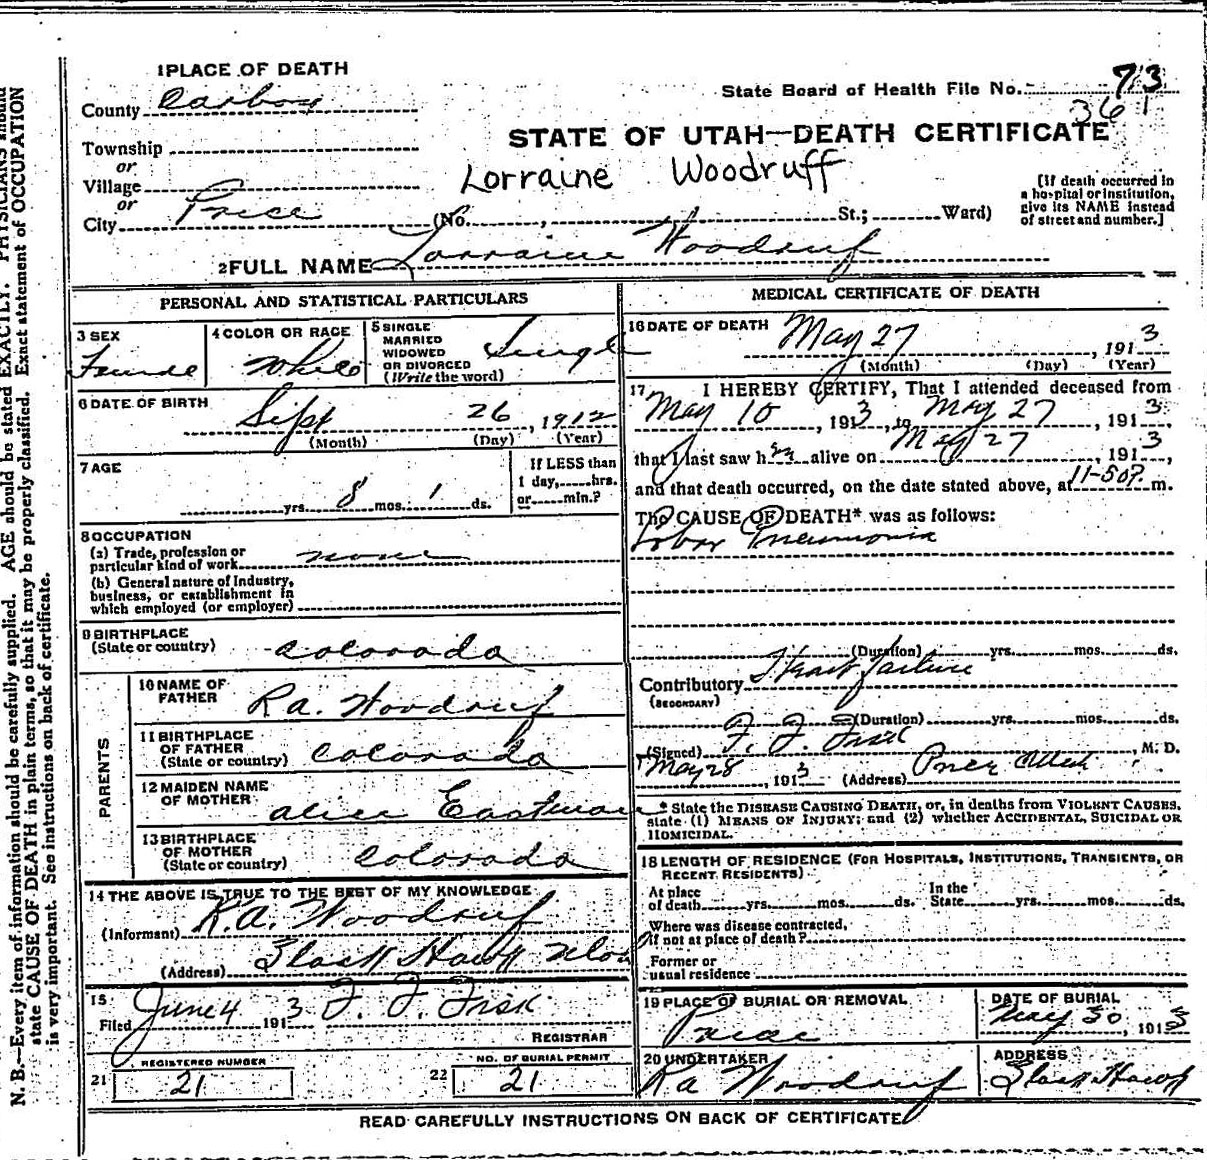 1 PLACE OF DEATH
County Carbon
Township
or
Village
or
City Price (No. , St.; Ward)
State Board of Health File No. 73
361
STATE OF UTAH—DEATH CERTIFICATE
Lorraine Woodruff
[If death occurred in
a hospital or institution,
give its NAME instead
of street and number.]
2 FULL NAME Lorraine Woodruf
PERSONAL AND STATISTICAL PARTICULARS
3 SEX
Female
4 COLOR OR RACE
White
5 SINGLE
MARRIED
WIDOWED
OR DIVORCED
(Write the word)
Single
6 DATE OF BIRTH
Sept 26, 1912
(Month) (Day) (Year)
7 AGE
yrs. 8 mos. 1 ds.
If LESS than
1 day, hrs.
or min.?
8 OCCUPATION
(a) Trade, profession or
particular kind of work none
(b) General nature of Industry,
business, or establishment in
which employed (or employer)
9 BIRTHPLACE
(State or country) Colorado
PARENTS
10 NAME OF
FATHER R.a. Woodruf
11 BIRTHPLACE
OF FATHER
(State or country) Colorado
12 MAIDEN NAME
OF MOTHER alice Eastman
13 BIRTHPLACE
OF MOTHER
(State or country) Colorado
14 THE ABOVE IS TRUE TO THE BEST OF MY KNOWLEDGE
(Informant) R.a. Woodruf
(Address) Black Hawk
15
Filed June 4 1913 F. F. Fisk
REGISTRAR
REGISTERED NUMBER
21 21
NO. OF BURIAL PERMIT
22 21
MEDICAL CERTIFICATE OF DEATH
16 DATE OF DEATH May 27, 1913
(Month) (Day) (Year)
17 I HEREBY CERTIFY, That I attended deceased from
May 10, 1913, to May 27, 1913
that I last saw her alive on May 27, 1913,
and that death occurred, on the date stated above, at 11-50P. m.
The CAUSE OF DEATH* was as follows:
Lobar Pneumonia
(Duration) yrs. mos. ds.
Contributory Heart failure
(SECONDARY)
(Duration) yrs. mos. ds.
(Signed) F. F. Fisk, M. D.
May 28, 1913 (Address) Price Utah
* State the DISEASE CAUSING DEATH, or, in deaths from VIOLENT CAUSES,
state (1) MEANS OF INJURY; and (2) whether ACCIDENTAL, SUICIDAL OR
HOMICIDAL.
18 LENGTH OF RESIDENCE (FOR HOSPITALS, INSTITUTIONS, TRANSIENTS, OR
RECENT RESIDENTS)
At place
of death yrs. mos. ds.
In the
State yrs. mos. ds.
Where was disease contracted,
if not at place of death?
Former or
usual residence
19 PLACE OF BURIAL OR REMOVAL
Price
DATE OF BURIAL
May 30, 1913
20 UNDERTAKER
R a Woodruf
ADDRESS
Black Hawk
READ CAREFULLY INSTRUCTIONS ON BACK OF CERTIFICATE
N. B.—Every item of information should be carefully supplied. AGE should be stated EXACTLY. PHYSICIANS should
state CAUSE OF DEATH in plain terms, so that it may be properly classified. Exact statement of OCCUPATION
is very important. See instructions on back of certificate.